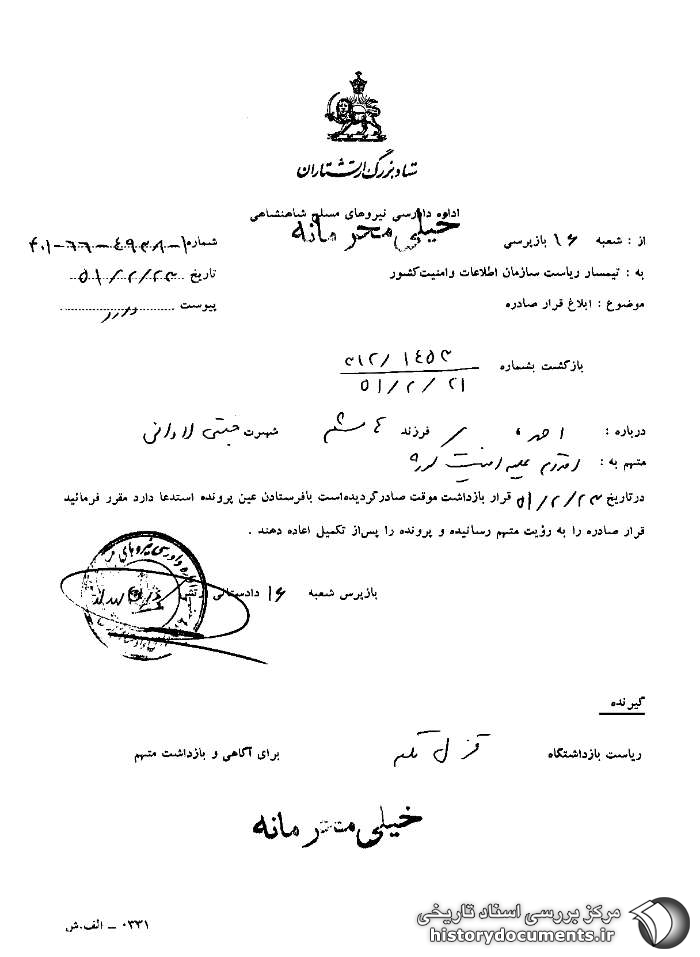 ستاد بزرگ ارتشتاران
اداره دادرسی نیروهای مسلح شاهنشاهی
خیلی محرمانه
از : شعبه ۱۶ بازپرسی
شماره
به : تیمسار ریاست سازمان اطلاعات و امنیت کشور
تاریخ ۵۱/۲/۲۳
موضوع : ابلاغ قرار صادره
پیوست دارد
بازگشت بشماره ۳۱۲/۱۴۵۳
۵۱/۲/۲۱
درباره : احمد فرزند هاشم شهرت جنتی لادانی
متهم به : اقدام علیه امنیت کشور
درتاریخ ۵۱/۲/۲۳ قرار بازداشت موقت صادرگردیده‌است بافرستادن عین پرونده استدعا دارد مقرر فرمائید
قرار صادره را به رؤیت متهم رسانیده و پرونده را پس‌از تکمیل اعاده دهند .
بازپرس شعبه ۱۶ دادستانی ارتش
گیرنده
ریاست بازداشتگاه قزل قلعه برای آگاهی و بازداشت متهم
خیلی محرمانه
۰۳۳۱ – الف.ش
مرکز بررسی اسناد تاریخی
historydocuments.ir